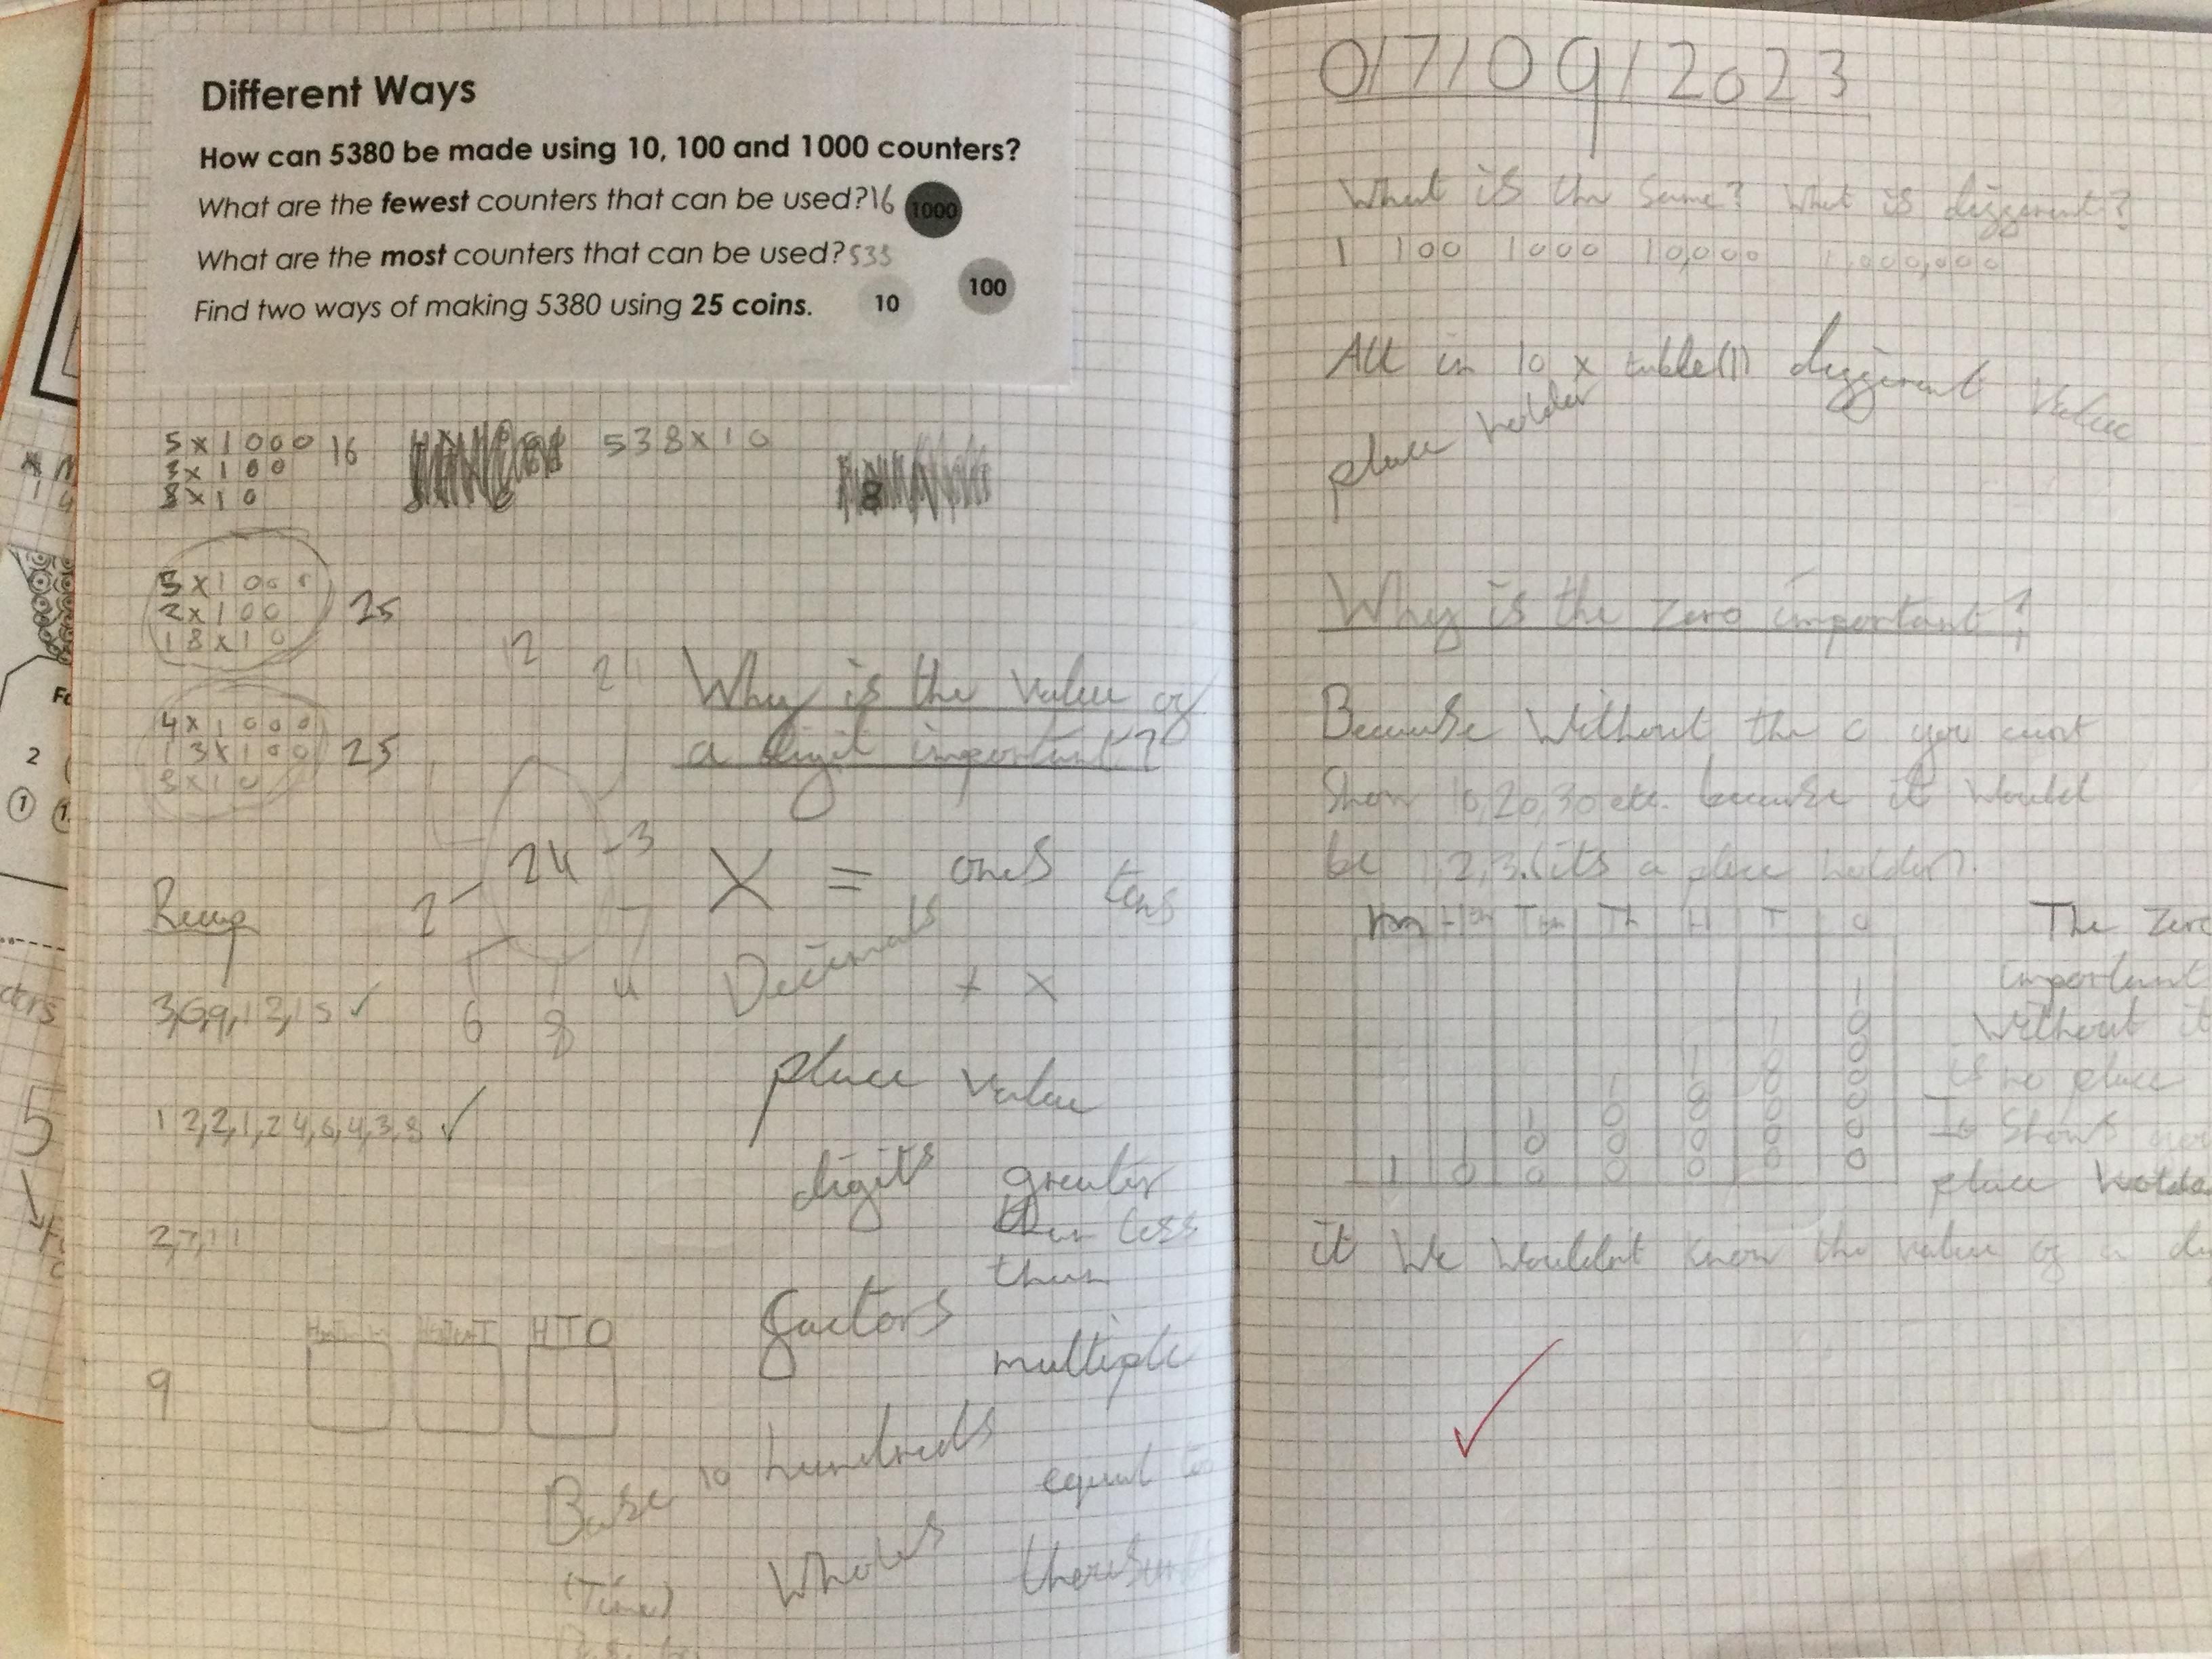 Different Ways
How can 5380 be made using 10, 100 and 1000 counters?
What are the fewest counters that can be used? 16
1000
What are the most counters that can be used?
100
Find two ways of making 5380 using 25 coins.
10
5 x 1000
3 x 100
8 x 10
16
538 x 10
8
5 x 1000
2 x 100
18 x 10
25
4 x 1000
13 x 100
8 x 10
25
12
24
Why is the value of
a digit important?
24
3
2
6
8
4
X = ones
tens
Decimals
+ x
place value
digits
greater
than less
than
factors
multiple
Base 10
hundreds
equal to
(Time)
Wholes
Recap
3,6,9,12,15 ✓
12,2,1,24,6,4,3,8 ✓
2,7,11
9
HTO
07/09/2023
What is the same? What is different?
1 100 1000 10,000 1,000,000
All in 10 x table(1) different value
place holder
Why is the zero important?
Because without the 0 you cant
show 10,20,30 etc. because it would
be 1,2,3.(its a place holder).
H T O
1
1 0
1 0 0
1 0 0 0
1 0 0 0 0
1 0 0 0 0 0
1 0 0 0 0 0 0
The zero
important
without it
is no place
To shows
place holder
it we wouldnt know the value of a